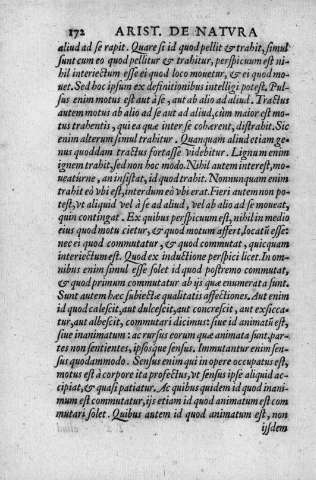 172 ARIST. DE NATVRA
aliud ad se rapit. Quare si id quod pellit & trahit, simul
sunt cum eo quod pellitur & trahitur, perspicuum est ni-
hil interiectum esse ei quod loco mouetur, & ei quod mo-
uet. Sed hoc ipsum ex definitionibus intelligi potest. Pul-
sus enim motus est aut à se, aut ab alio ad aliud. Tractus
autem motus ab alio ad se aut ad aliud, cùm maior est mo-
tus trahentis, qui ea quæ inter se cohærent, distrahit. Sic
enim alterum simul trahitur. Quanquam aliud etiam ge-
nus quoddam tractus fortasse videbitur. Lignum enim
ignem trahit, sed non hoc modo. Nihil autem interest, mo-
ueatúrne, an insistat, id quod trahit. Nonnunquam enim
trahit eò vbi est, interdum eò vbi erat. Fieri autem non po-
test, vt aliquid vel à se ad aliud, vel ab alio ad se moueat,
quin contingat. Ex quibus perspicuum est, nihil in medio
eius quod motu cietur, & quod motum affert, locatũ esse:
nec ei quod commutatur, & quod commutat, quicquam
interiectum est. Quod ex inductione perspici licet. In om-
nibus enim simul esse solet id quod postremo commutat,
& quod primum commutatur ab ijs quæ enumerata sunt.
Sunt autem hæc subiectæ qualitatis affectiones. Aut enim
id quod calescit, aut dulcescit, aut concrescit, aut exsicca-
tur, aut albescit, commutari dicimus: siue id animatũ est,
siue inanimatum: ac rursus eorum quæ animata sunt, par-
tes non sentientes, ipsosque sensus. Immutantur enim sen-
sus quodammodo. Sensus enim qui in opere occupatus est,
motus est à corpore ita profectus, vt sensus ipse aliquid ac-
cipiat, & quasi patiatur. Ac quibus quidem id quod inani-
mum est commutatur, ijs etiam id quod animatum est com
mutari solet. Quibus autem id quod animatum est, non
ijsdem